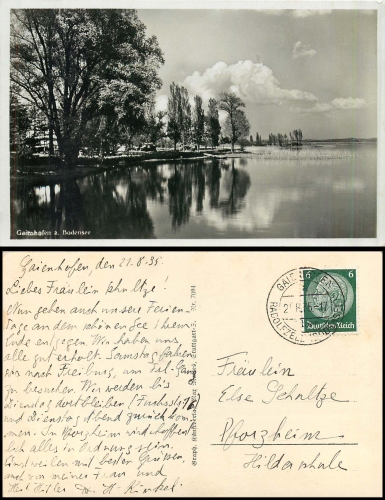 Gaienhofen a. Bodensee
Gaienhofen, den 21.8.35.
Liebes Fräulein Schultze!
Nun gehen auch unsere Ferien-
tage am schönen See ihrem
Ende entgegen. Wir haben uns
alle gut erholt. Samstag fahren
wir nach Freiburg, um
zu besuchen. Wir werden bis
Dienstag dort bleiben
und Dienstag Abend zurück kom-
men. In Pforzheim wird hoffen-
tlich alles in Ordnung sein.
Einstweilen mit besten Grüßen
auch von meiner Frau und
Heil Hitler Dr. H.
Nr. 7094
6 6
Deutsches Reich
GAIENHOFEN
RADOLFZELL
Fräulein
Else Schultze
Pforzheim
Hildastraße